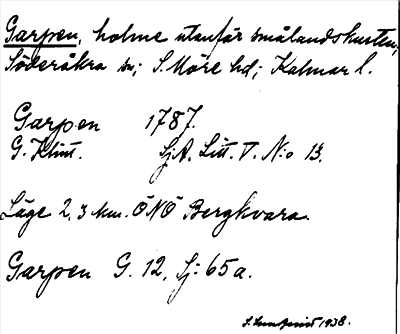 Garpen, holme utanför smålandskusten,
Söderåkra sn; S. Möre hd; Kalmar l.
Garpen 1787.
G. Klint. Sj.A. Litt. V. N:o 13.
Läge 2,3 km. ÖNÖ Bergkvara.
Garpen G. 12, Sj: 65a.
1938.